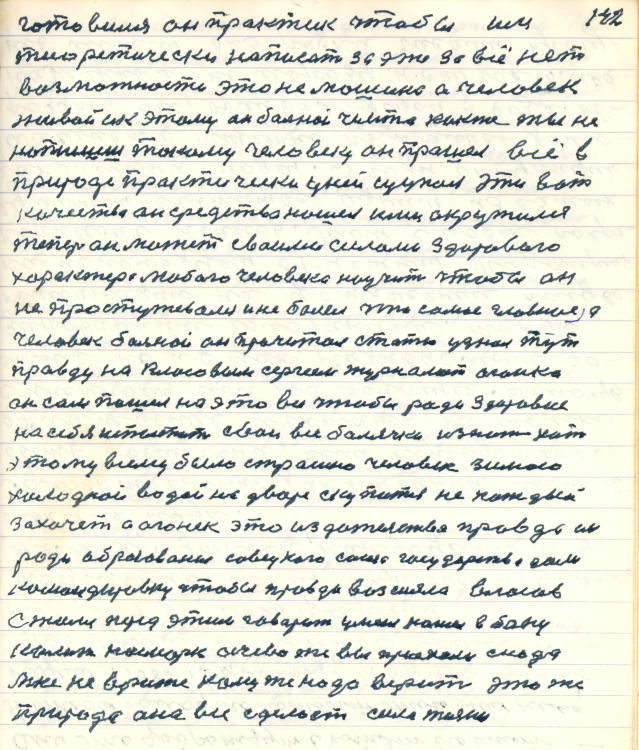 142
готовился он практик чтобы им
тиоретически написат за это за всё нет
возможности это не мошина а человек
живой ик этому он баяной
ты не
такому человеку он прашол всё в
природе практически
эти вот
качества он средства нашел ими окружился
тепер он может своими силами здорового
характера любого человека научит чтобы он
не простужевался и не болел что самое главное, а
человек баяной он прочитал статю
тут
правду на Власовым сергеем журналист огонка
он сам пошел на это все чтобы ради здоровие
на себя
свои все балячки
хот
этому всему было страшно человек зимою
холодной водой на дворе скупатся не каждый
захочет а огонек это издателства правда и
ради образования совецкого союза государства дали
командировку чтобы правда возсияла Власов
с нами перед этим говорит
в бану
насморк
же вы приехали сюда
мне не верите кому же надо верит это же
природа она все сделает